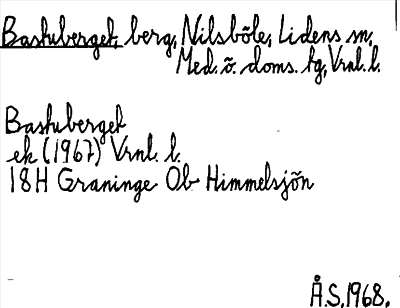 Bastuberget, berg, Nilsböle, Lidens sn,
Med. ö. doms. tg, Vrnl. l.
Bastuberget
ek (1967) Vrnl. l.
18H Graninge Ob Himmelsjön
Å.S. 1968.